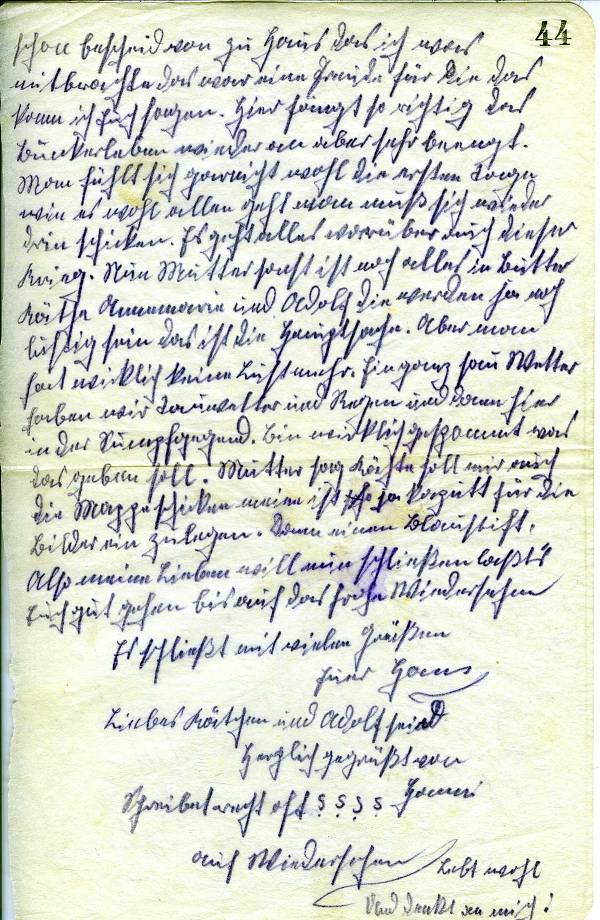 44
schon bescheid von zu Haus das ich was
mitbrachte das war eine Freude für die das
kann ich Euch sagen. Hier fängt so richtig das
Bunkerleben wieder an aber sehr beengt.
Man fühlt sich garnicht wohl die ersten Tage
wie es wohl allen geht man muß sich wieder
drin schicken. Es geht alles vorrüber auch dieser
Krieg. Nun Mutter sonst ist noch alles in Butter
Käthe Annemarie und Adolf die werden ja noch
lustig sein das ist die Hauptsache. Aber man
hat wirklich keine Lust mehr. Ein ganz sau Wetter
haben wir Tauwetter und Regen und dann hier
in der Sumpfgegend. Bin wirklich gespannt was
das geben soll. Mutter sag Käthe soll mir auch
die Mappe schicken meine ist ja kaputt für die
Bilder ein zulegen. Dann einen Blaustift.
Also meine Lieben will nun schließen laßt's
Euch gut gehen bis auf das frohe Wiedersehn
Es schließt mit vielen Grüßen
Euer Hans
Liebes Kätchen und Adolf seid
Herzlich gegrüßt von
Schreibet recht oft Hanni
auf Wiedersehen Lebt wohl
Und denkt an mich!